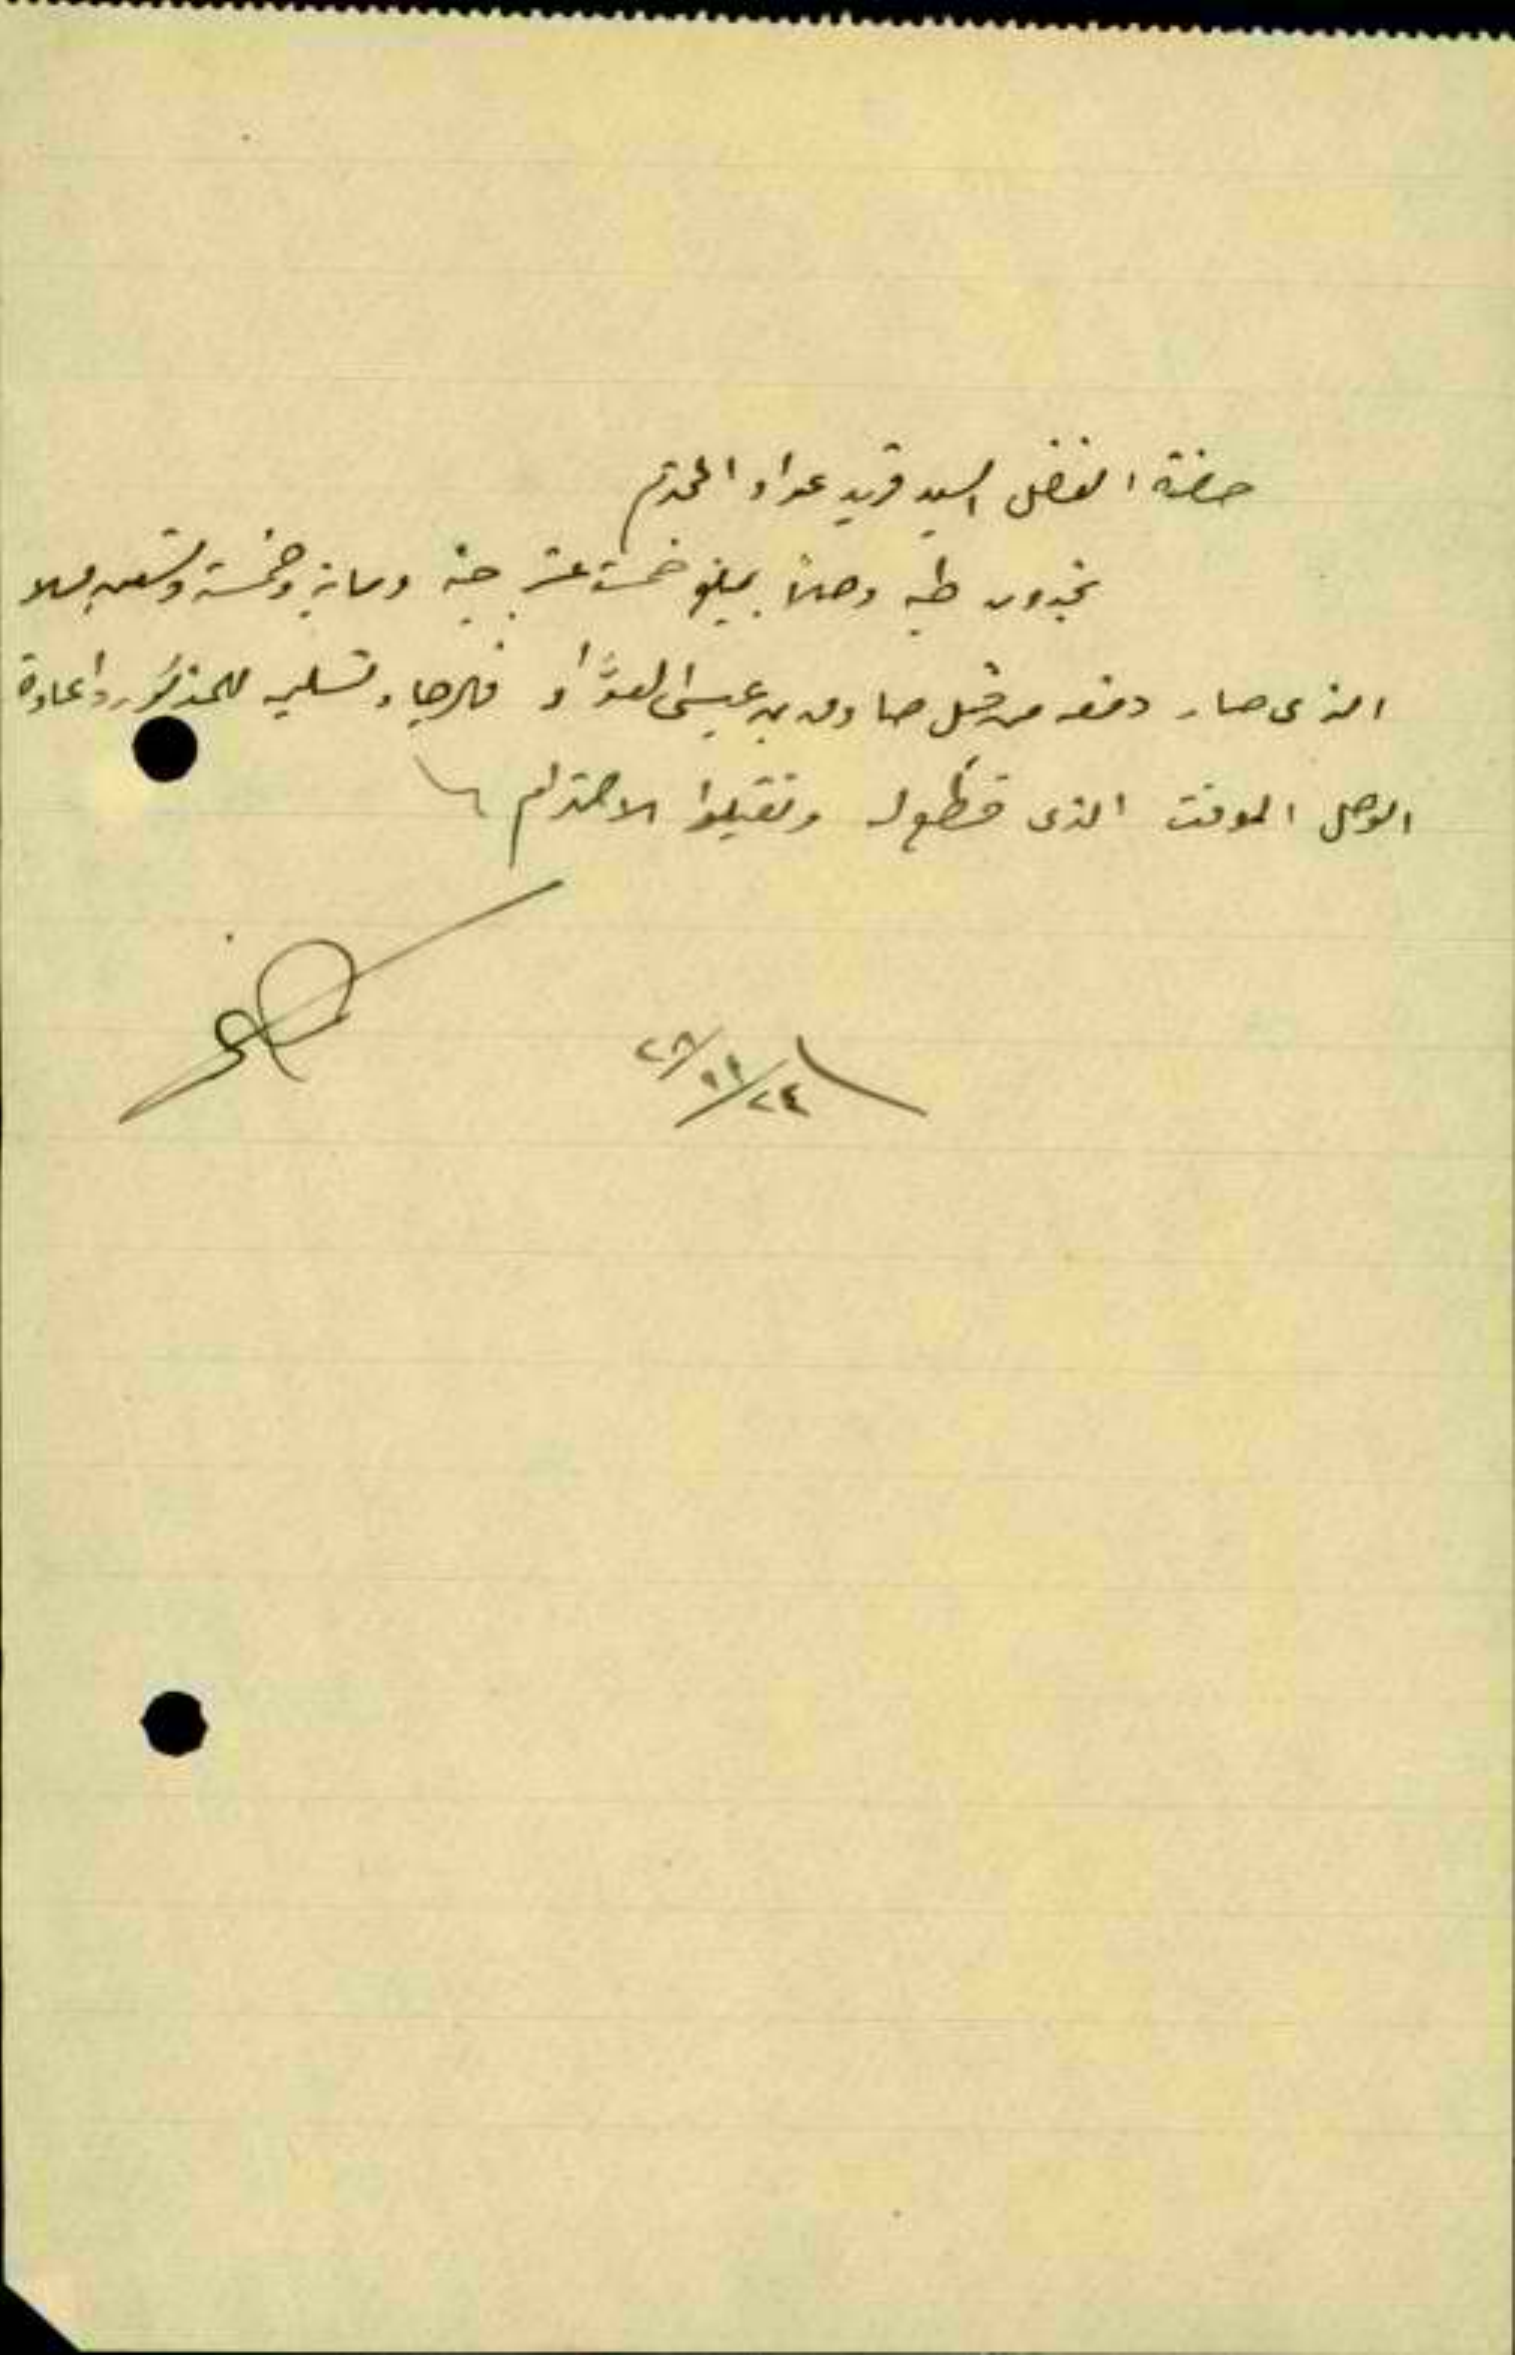 حضرة الفاضل السيد فريد عواد المحترم
تجدون طيه وصلاً بمبلغ خمسة عشر جنيه وماية وخمسة وتسعين ملا
الذي صار دفعه من قبل صادق بن عيسى العوّاد فالرجاء تسليمه للمذكور واعادة
الوصل الموقت الذي قطع له وتقبلوا الاحترام
٢٨/١١/٢٤